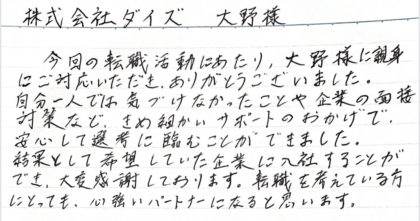 株式会社ダイズ 大野様
今回の転職活動にあたり、大野様に親身
にご対応いただき、ありがとうございました。
自分一人では気づけなかったことや企業の面接
対策など、きめ細かいサポートのおかげで、
安心して選考に臨むことができました。
結果として希望していた企業に入社することが
でき、大変感謝しております。転職を考えている方
にとっても、心強いパートナーになると思います。